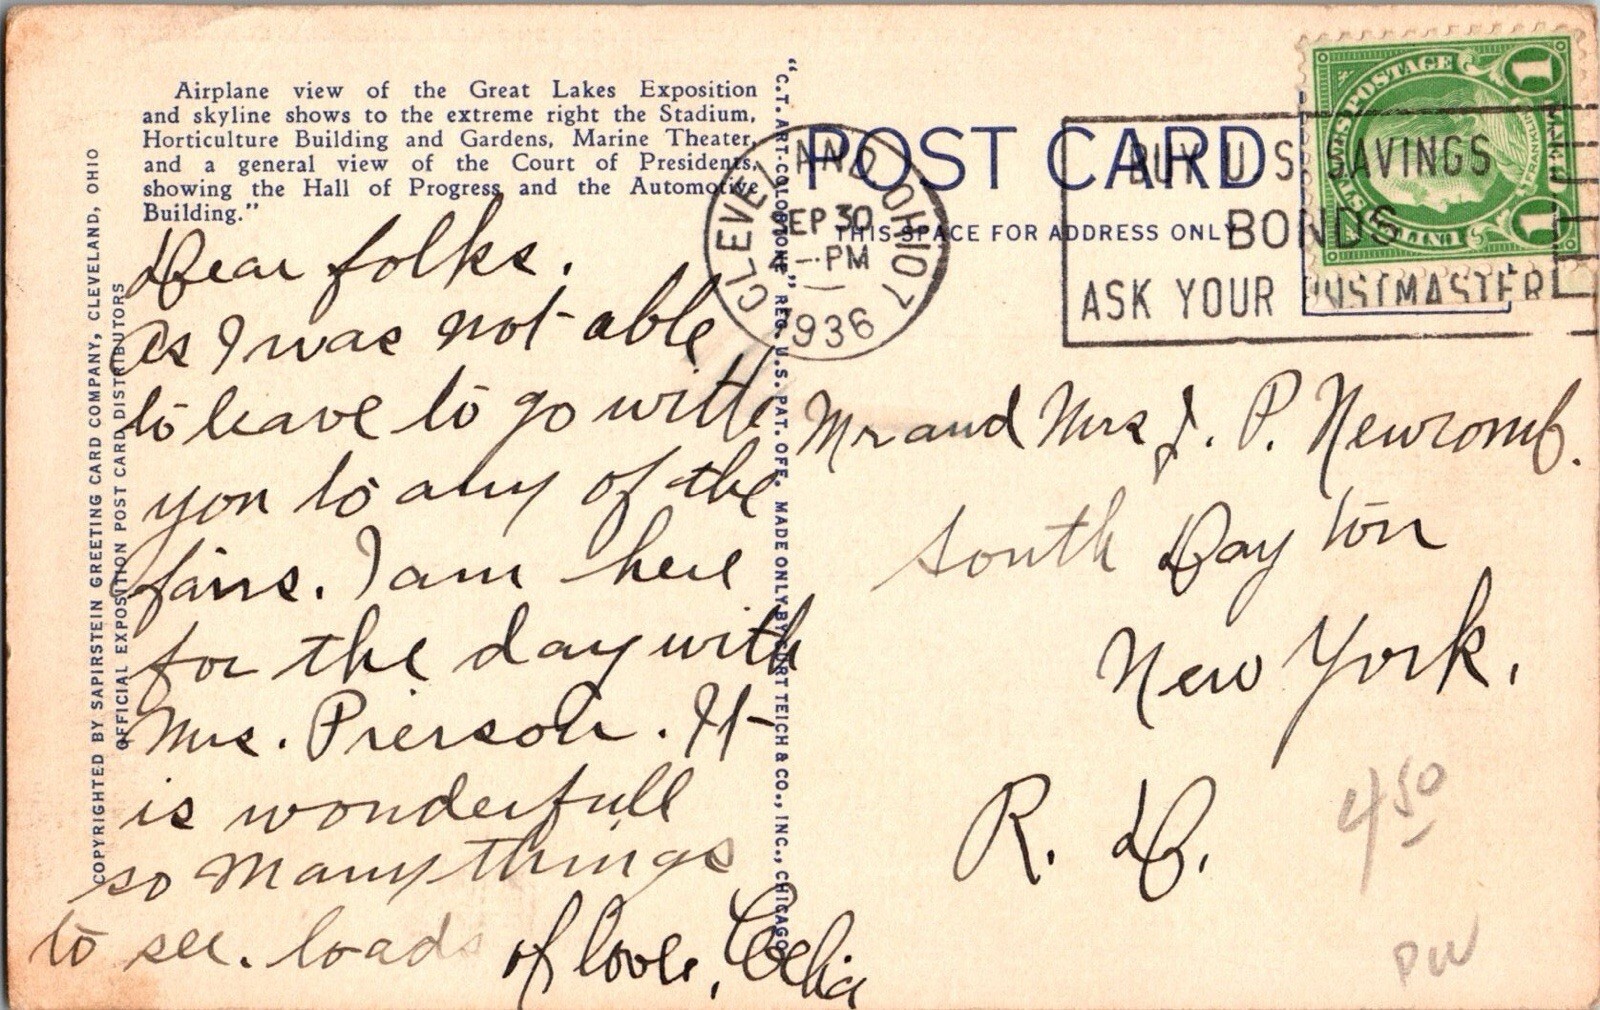 Airplane view of the Great Lakes Exposition
and skyline shows to the extreme right the Stadium,
Horticulture Building and Gardens, Marine Theater,
and a general view of the Court of Presidents,
showing the Hall of Progress and the Automotive
Building."
COPYRIGHTED BY SAPIRSTEIN GREETING CARD COMPANY, CLEVELAND, OHIO
OFFICIAL EXPOSITION POST CARD DISTRIBUTORS
Dear folks.
As I was not able
to leave to go with
you to any of the
fairs. I am here
for the day with
Mrs. Pierson. It
is wonderfull
so many things
to see. loads of love, Celia
"C.T. ART-COLORTONE" REG. U.S. PAT. OFF. MADE ONLY BY CURT TEICH & CO., INC., CHICAGO
POST CARD
THIS SPACE FOR ADDRESS ONLY
CLEVELAND OHIO 7
SEP 30
PM
1936
BUY U S SAVINGS
BONDS
ASK YOUR POSTMASTER
UNITED STATES POSTAGE
1
1
FRANKLIN
Mr and Mrs J. P. Newcomb.
South Dayton
New York.
R. D.
4 50
PW